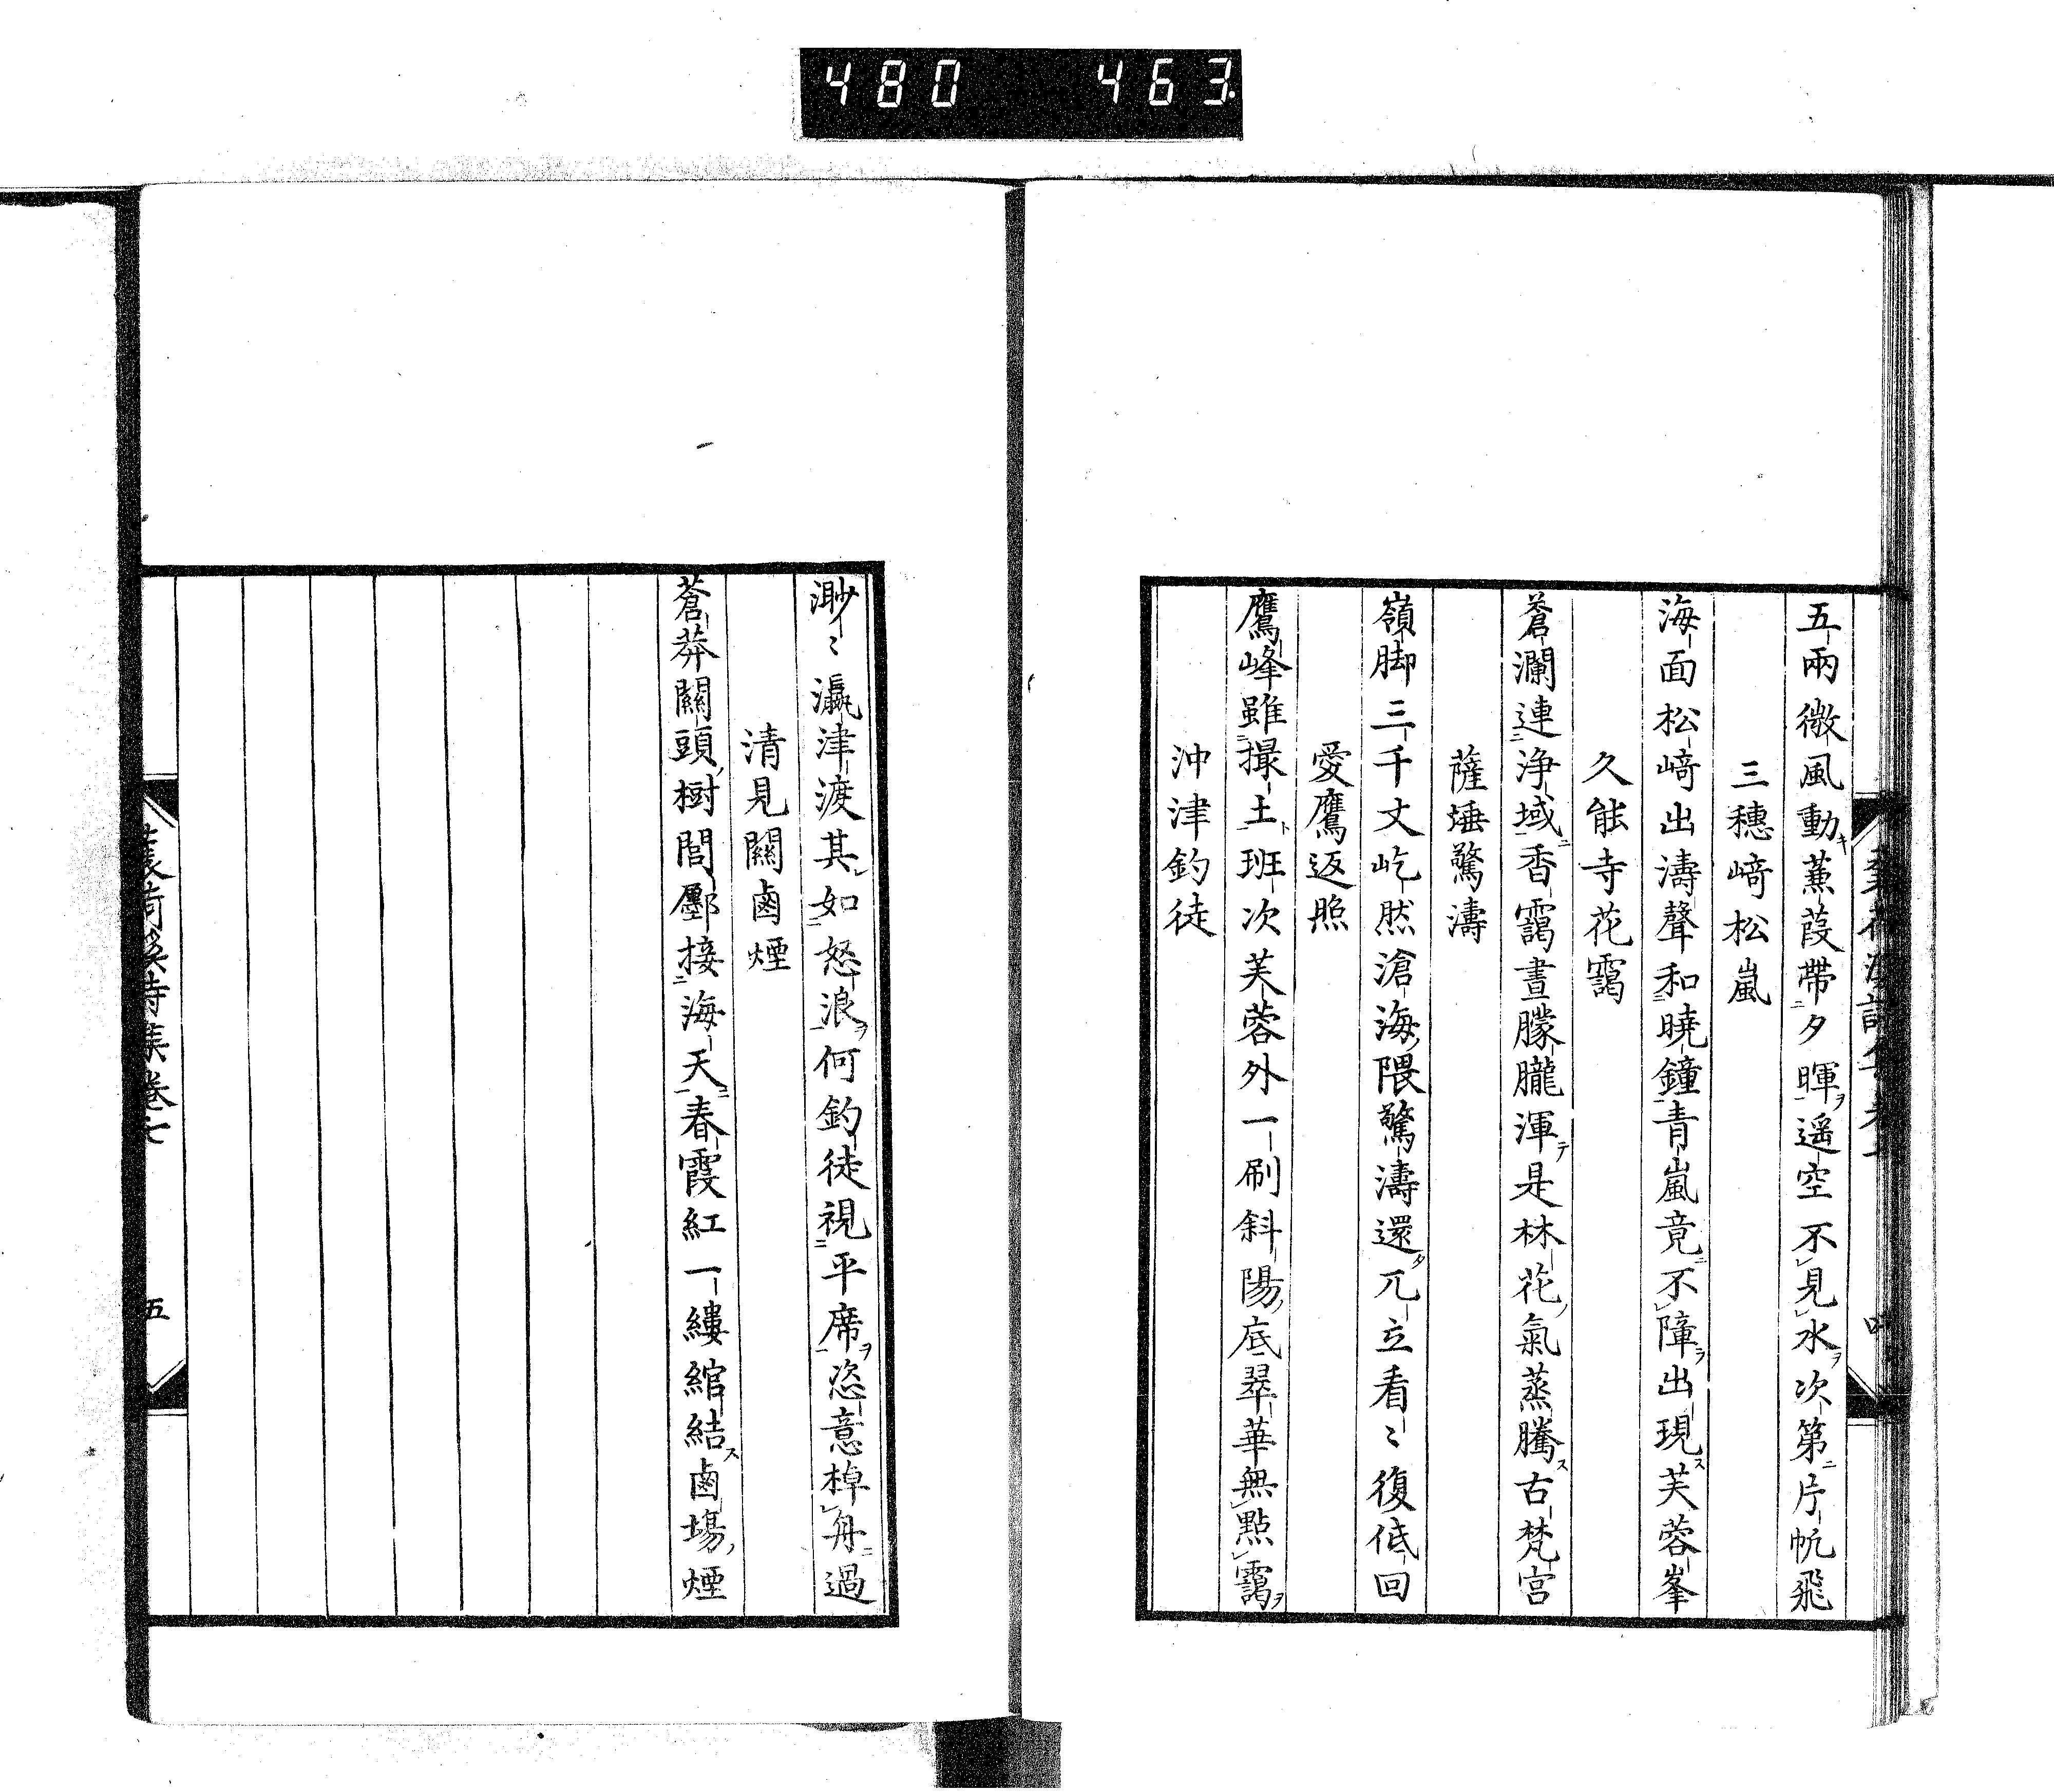 480 463
五兩微風動蒹葭帶夕暉遥空不見水次第片帆飛
三穗﨑松嵐
海面松﨑出濤聲和曉鐘青嵐竟不障出現芙蓉峯
久能寺花靄
蒼瀾連浄域香靄晝朦朧渾是林花氣蒸騰古梵宮
薩埵驚濤
嶺脚三千丈屹然滄海隈驚濤還兀立看〻復低回
愛鷹返照
鷹峰雖撮土班次芙蓉外一刷斜陽底翠華無點靄
沖津釣徒
渺〻瀛津渡其如怒浪何釣徒視平席恣意棹舟過
清見關鹵煙
蒼莽關頭樹閭鄽接海天春霞紅一縷綰結鹵塲煙
詩集卷七
五